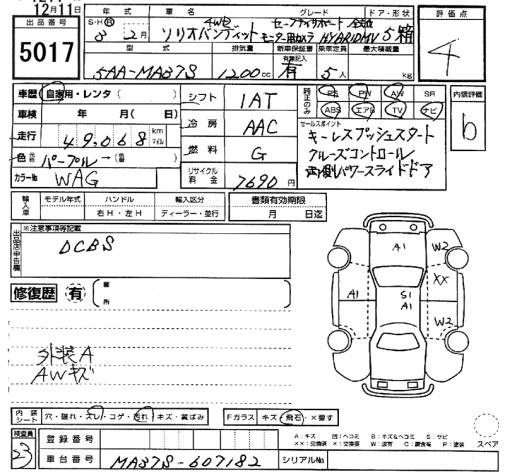 12月11日
出品番号
5017
年式 車名 グレード ドア・形状
S・H・R 3年 2月 ソリオバンディット 4WD セーフティサポート 全方位モニター用カメラ HYBRIDMV 5箱
型式 排気量 新車保証書 乗車定員 最大積載量
有無記入
5AA-MA37S 1200cc 有 5人 kg
評価点
4
車歴 自家用・レンタ ( )
車検 年 月( 日)
走行 49,068 km マイル
色 パープル→色( )
カラーNo WAG
シフト 1AT
冷房 AAC
燃料 G
リサイクル料金 7690円
純正のみ PS PW AW SR
ABS エアB TV ナビ
内装評価
b
セールスポイント
キーレスプッシュスタート
クルーズコントロール
両側パワースライドドア
輸入車 モデル年式 ハンドル 輸入区分 書類有効期限
右H・左H ディーラー・並行 月 日迄
出品店申告欄
※注意事項等記載
DCBS
修復歴 有 箇所
外装A
AWキズ
A1 W2
XX
A1 S1
A1
W2
内装シート 穴・破れ・スレ・コゲ・汚れ・キズ・黄ばみ Fガラス キズ・飛石・×要す
検査員
23
登録番号
車台番号 MA37S-607182 シリアルNo
A：キズ
スペア